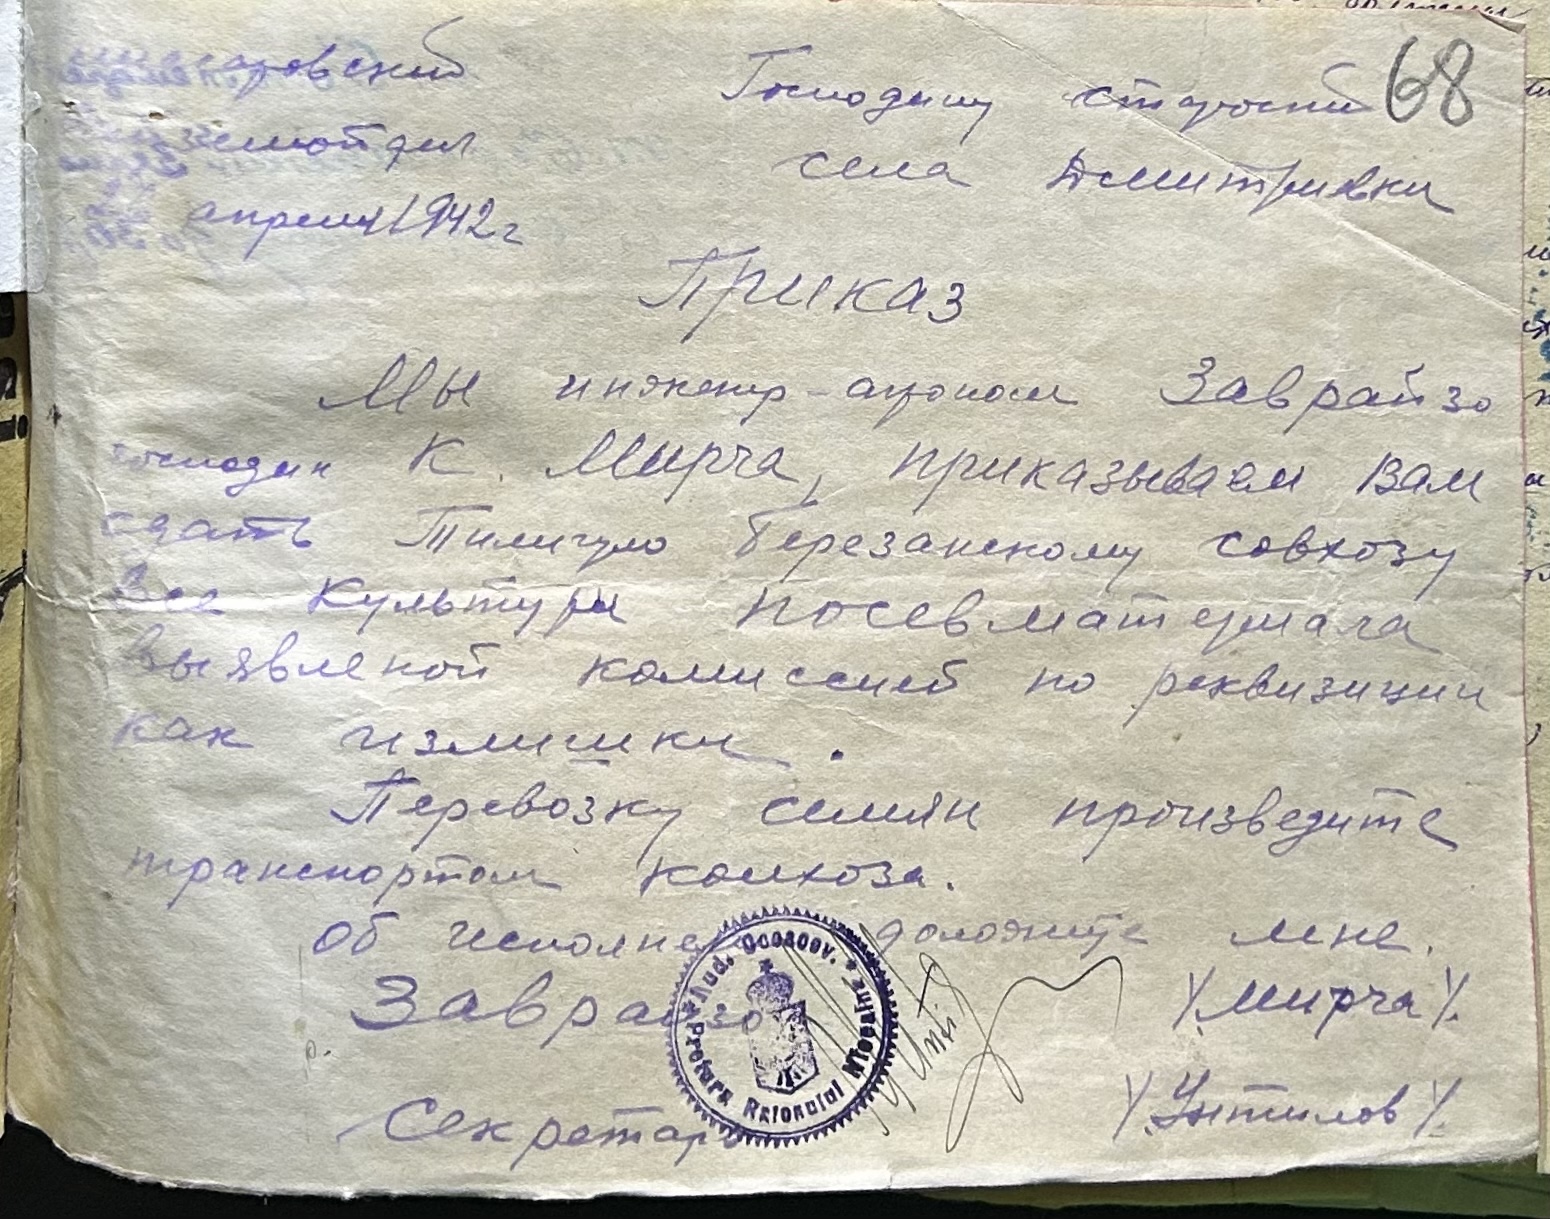 68
Господину старости
села Дмитриевки
земотдел
апреля 1942 г
Приказ
Мы инженер-агроном Заврайзо
господин К. Мирча, приказываем Вам
сдать Тилигуло Березанскому совхозу
все культуры посевматериала
выявленой комиссией по реквизиции
как излишки.
Перевозку семян производите
транспортом колхоза.
Об доложите мне.
Заврайзо /Мирча/.
Секретарь /Унтилов/.
Pretura Raionului Jud. Oceacov.